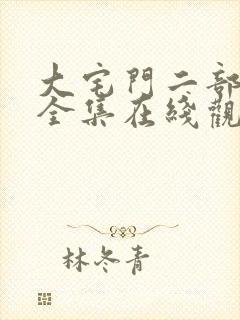 大宅門二部
全集在綫觀
林冬青